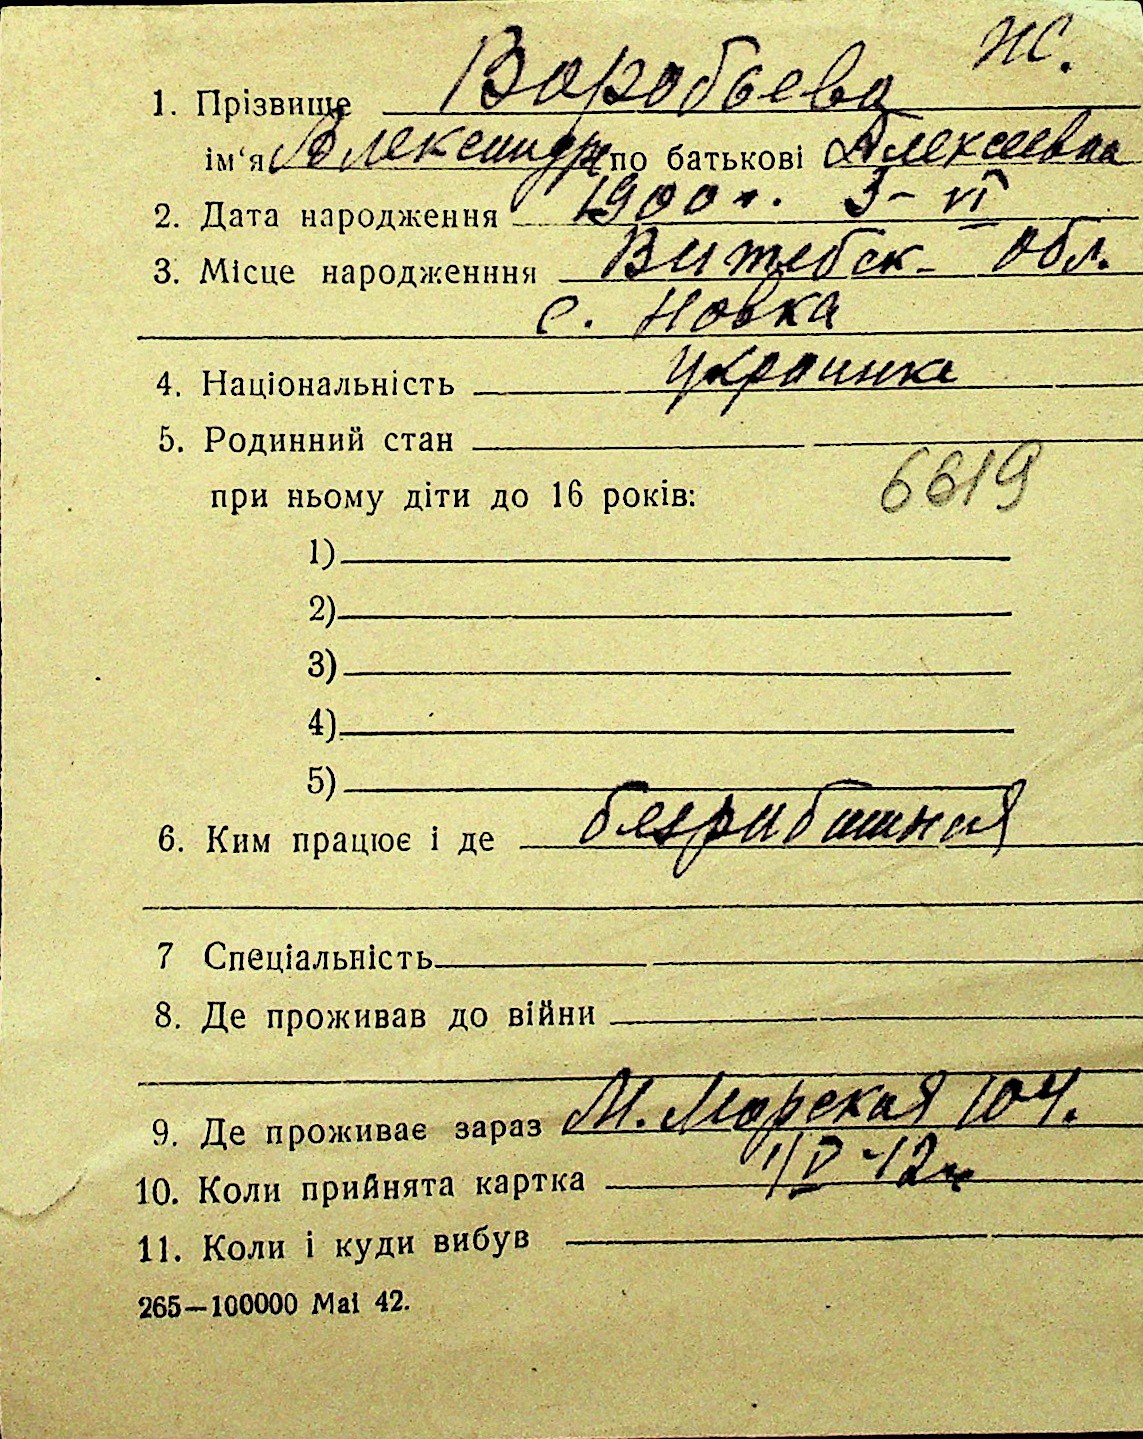 Ж.
1. Прізвище Воробьева
ім‘я Александра по батькові Алексеевна
2. Дата народження 1900 г. 3 - VI
3. Місце народженння Витебск. обл.
с. Новка
4. Національність украинка
5. Родинний стан
6619
при ньому діти до 16 років:
1)
2)
3)
4)
5)
6. Ким працює і де
7 Спеціальність
8. Де проживав до війни
9. Де проживає зараз М. Морская 104.
10. Коли прийнята картка
11. Коли і куди вибув
265—100000 Mai 42.